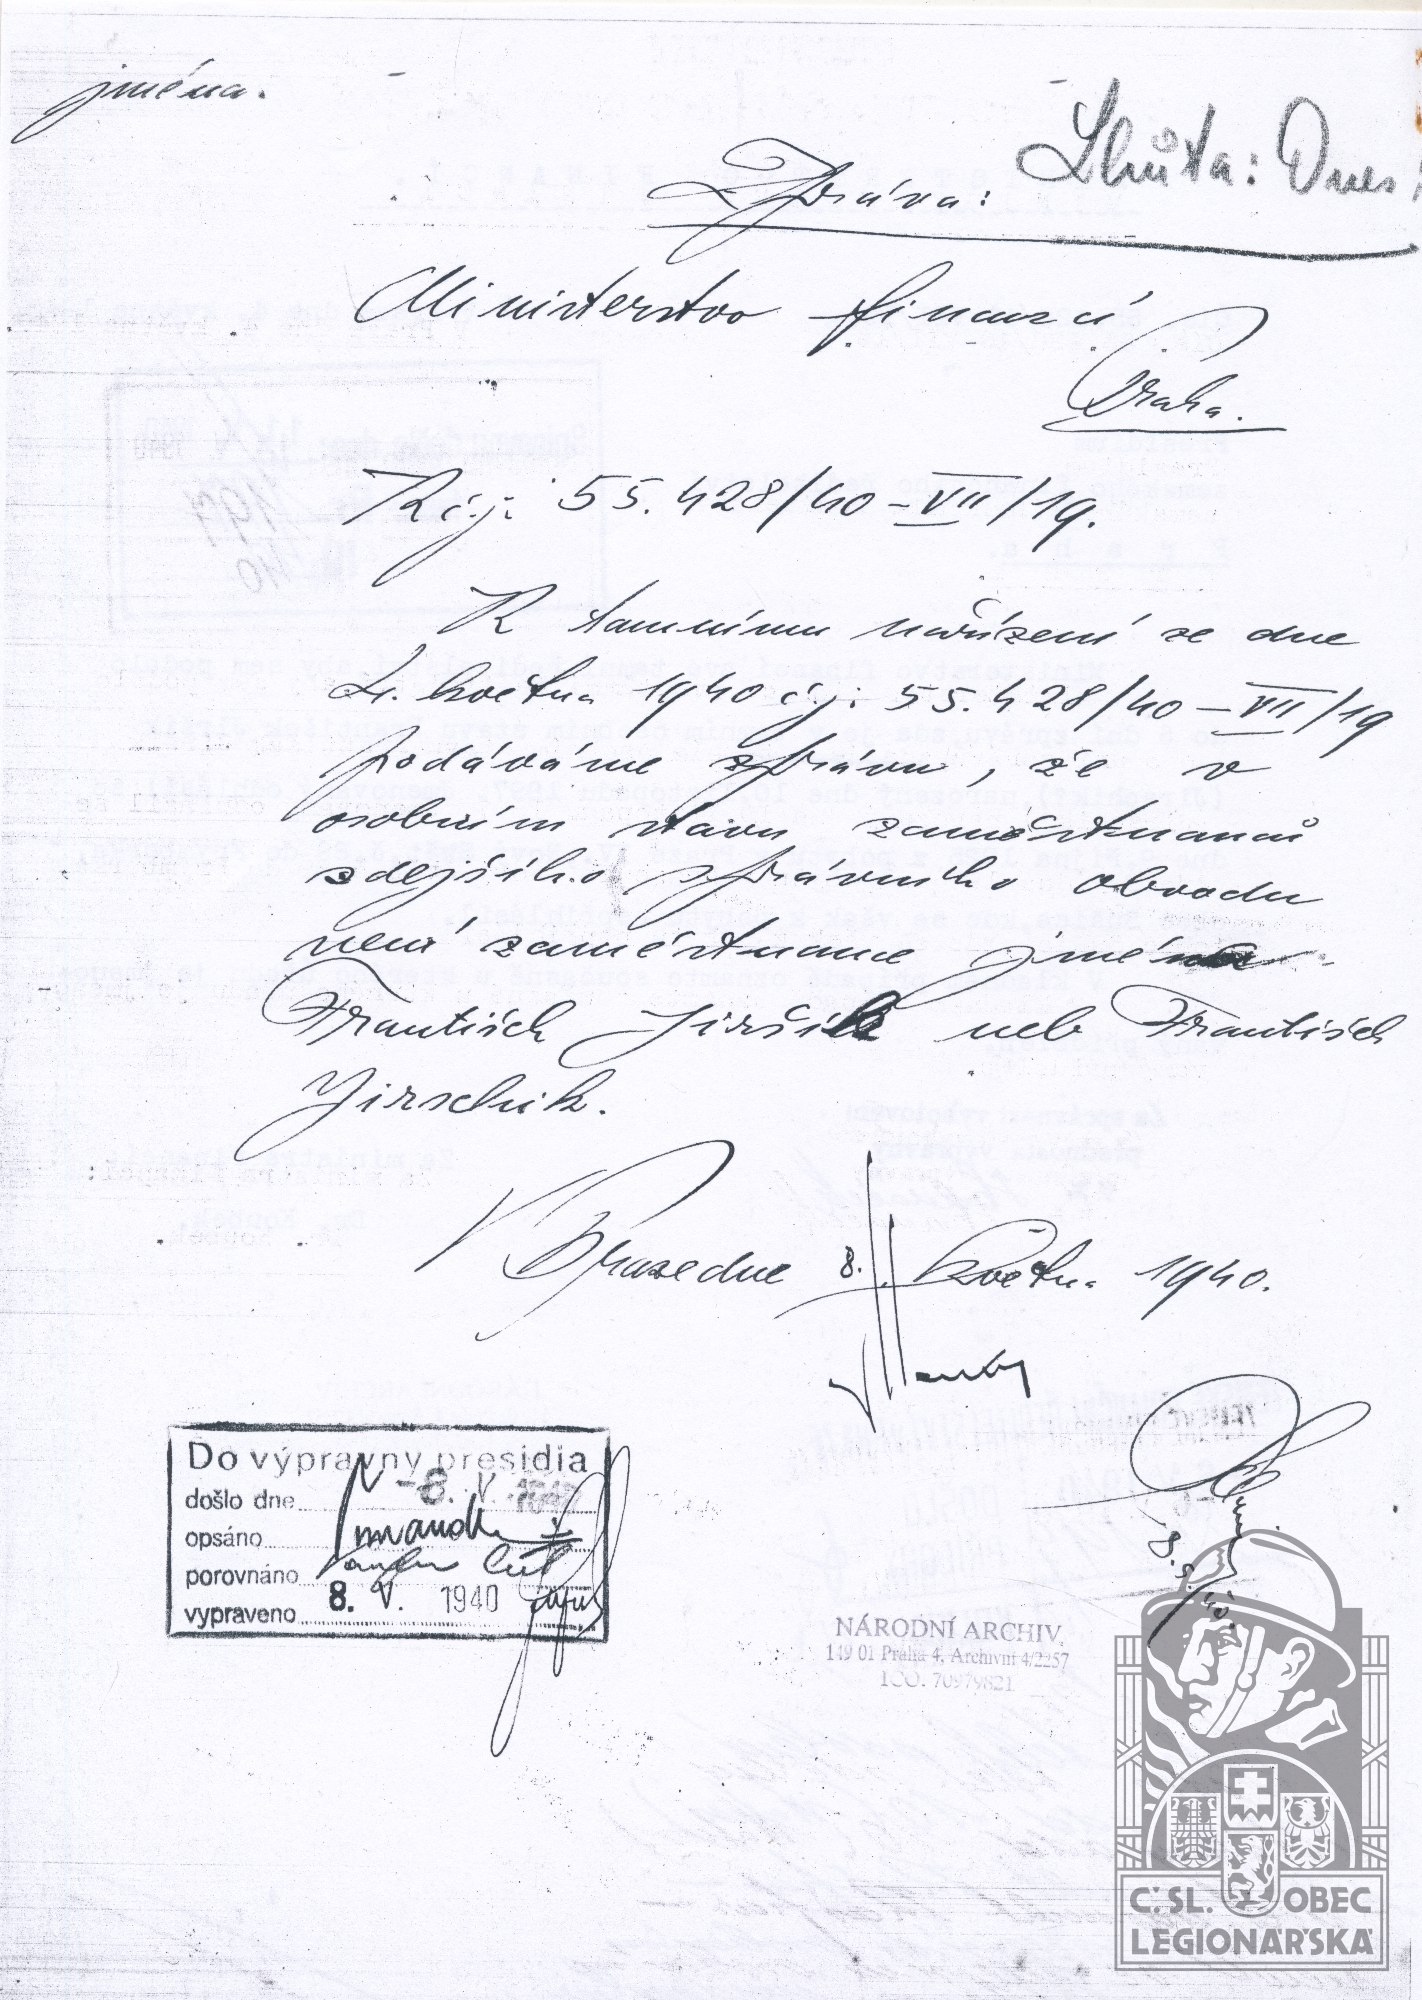 jména.
Lhůta: Dnes!
Zpráva:
Ministerstvo financí
Praha.
K čj: 55.428/40-VII/19.
K tamnímu nařízení ze dne
4. května 1940 čj: 55.428/40-VII/19
podáváme zprávu, že v
osobním stavu zaměstnanců
zdejšího správního obvodu
není zaměstnance jména
František Jirsík neb František
Jirschik.
V Praze dne 8. května 1940.
Do výpravny presidia
došlo dne -8. V. 1940
opsáno
porovnáno
vypraveno 8. V. 1940
8.5.40.
NÁRODNÍ ARCHIV
149 01 Praha 4, Archivní 4/2257
IČO: 70979821
Č.SL. OBEC
LEGIONÁŘSKÁ